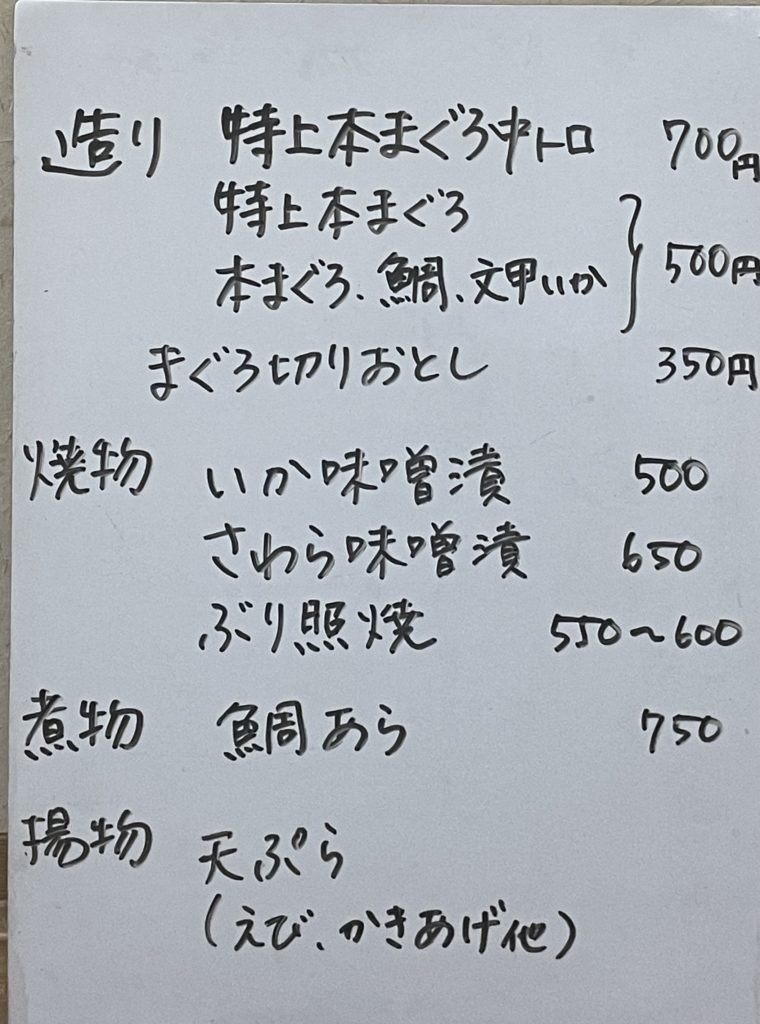 造り 特上本まぐろ中トロ 700円
特上本まぐろ
本まぐろ、鯛、文甲いか } 500円
まぐろ切りおとし 350円
焼物 いか味噌漬 500
さわら味噌漬 650
ぶり照焼 550〜600
煮物 鯛あら 750
揚物 天ぷら
(えび、かきあげ他)